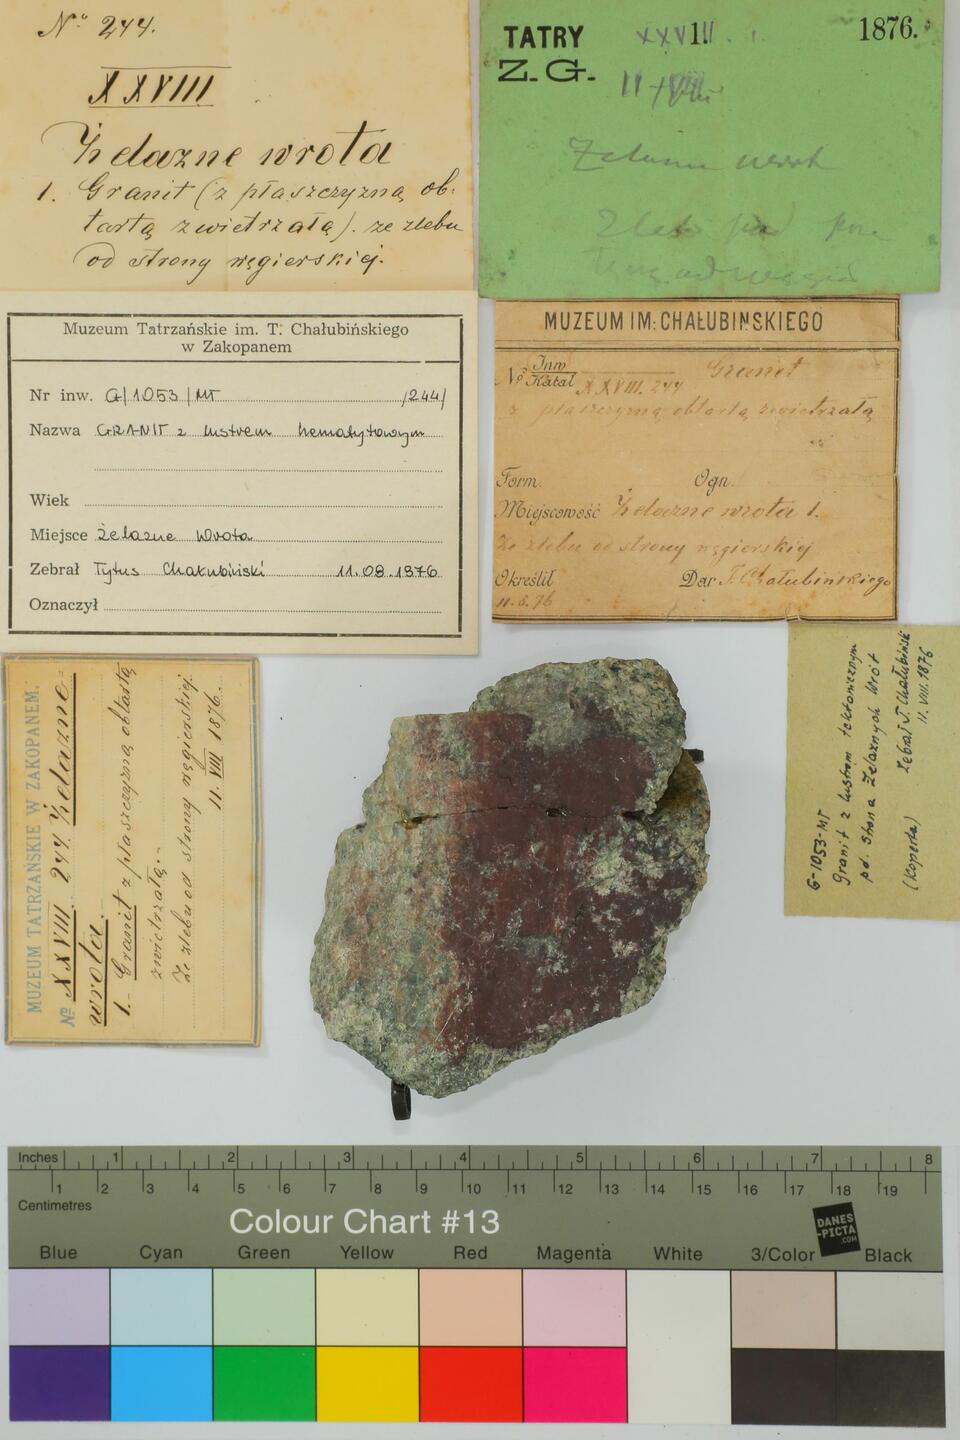 No 244.
XXVIII
Żelazne wrota
1. Granit (z płaszczyzną ob-
tartą zwietrzałą). ze żlebu
od strony węgierskiej.
TATRY XXVIII. 1876.
Z. G.
II
Muzeum Tatrzańskie im. T. Chałubińskiego
w Zakopanem
Nr inw. G/1053/MT /244/
Nazwa GRANIT z lustrem hematytowym
Wiek
Miejsce Żelazne Wrota
Zebrał Tytus Chałubiński 11.08.1876
Oznaczył
MUZEUM IM: CHAŁUBIŃSKIEGO
No Inw Katal XXVIII. 244 Granit
z płaszczyzną obtartą zwietrzałą
Form. Ogn.
Miejscowość Żelazne wrota 1.
Ze żlebu od strony węgierskiej
Określił Dar T. Chałubińskiego
11.8.76
MUZEUM TATRZAŃSKIE W ZAKOPANEM.
No XXVIII 244. Żelazne
wrota.
1.- Granit z płaszczyzną obtartą
zwietrzałą.-
Ze żlebu od strony węgierskiej.
11. VIII 1876.
G-1053-MT
Granit z lustrem tektonicznym
pd. strona Żelaznych Wrót
Zebrał T. Chałubiński
11. VIII. 1876
(koperta)
Inches 1 2 3 4 5 6 7 8
1 2 3 4 5 6 7 8 9 10 11 12 13 14 15 16 17 18 19
Centimetres
Colour Chart #13
DANES
-PICTA
.COM
Blue Cyan Green Yellow Red Magenta White 3/Color Black